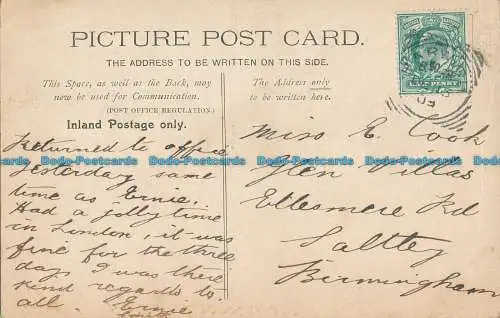 PICTURE POST CARD.
THE ADDRESS TO BE WRITTEN ON THIS SIDE.
This Space, as well as the Back, may
now be used for Communication.
(POST OFFICE REGULATION.)
Inland Postage only.
The Address only
to be written here.
Returned to office
yesterday same
time as Ernie.
Had a jolly time
in London, it was
fine for the three
days I was there
kind regards to
all. Ernie
Smith
Miss E. Cook
Glen Villas
Ellesmere Rd
Saltley
Birmingham
Bodo-Postcards Bodo-Postcards Bodo-Postcards Bodo-Postcards